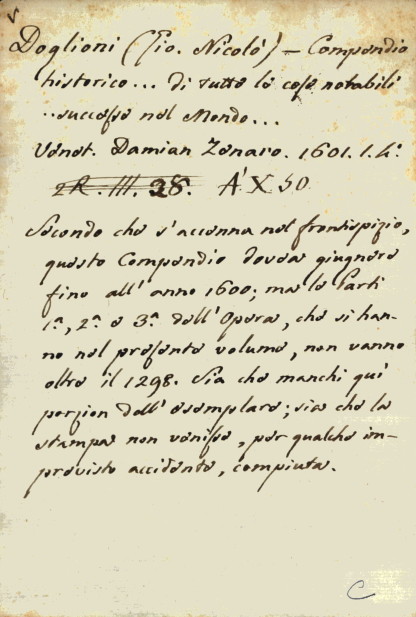 Doglioni (Gio. Nicolò) — Compendio
historico... di tutte le cose notabili
..successe nel Mondo...
Venet. Damian Zenaro. 1601. 1. 4.°
R. III. 28. A X 50
Secondo che s'accenna nel frontispizio,
questo Compendio dovea giugnere
fino all'anno 1600; ma le Parti
1.ª, 2.ª e 3.ª dell'Opera, che si han-
no nel presente volume, non vanno
oltre il 1298. Sia che manchi quì
porzion dell'esemplare; sia che la
stampa non venisse, per qualche im-
previsto accidente, compiuta.
C